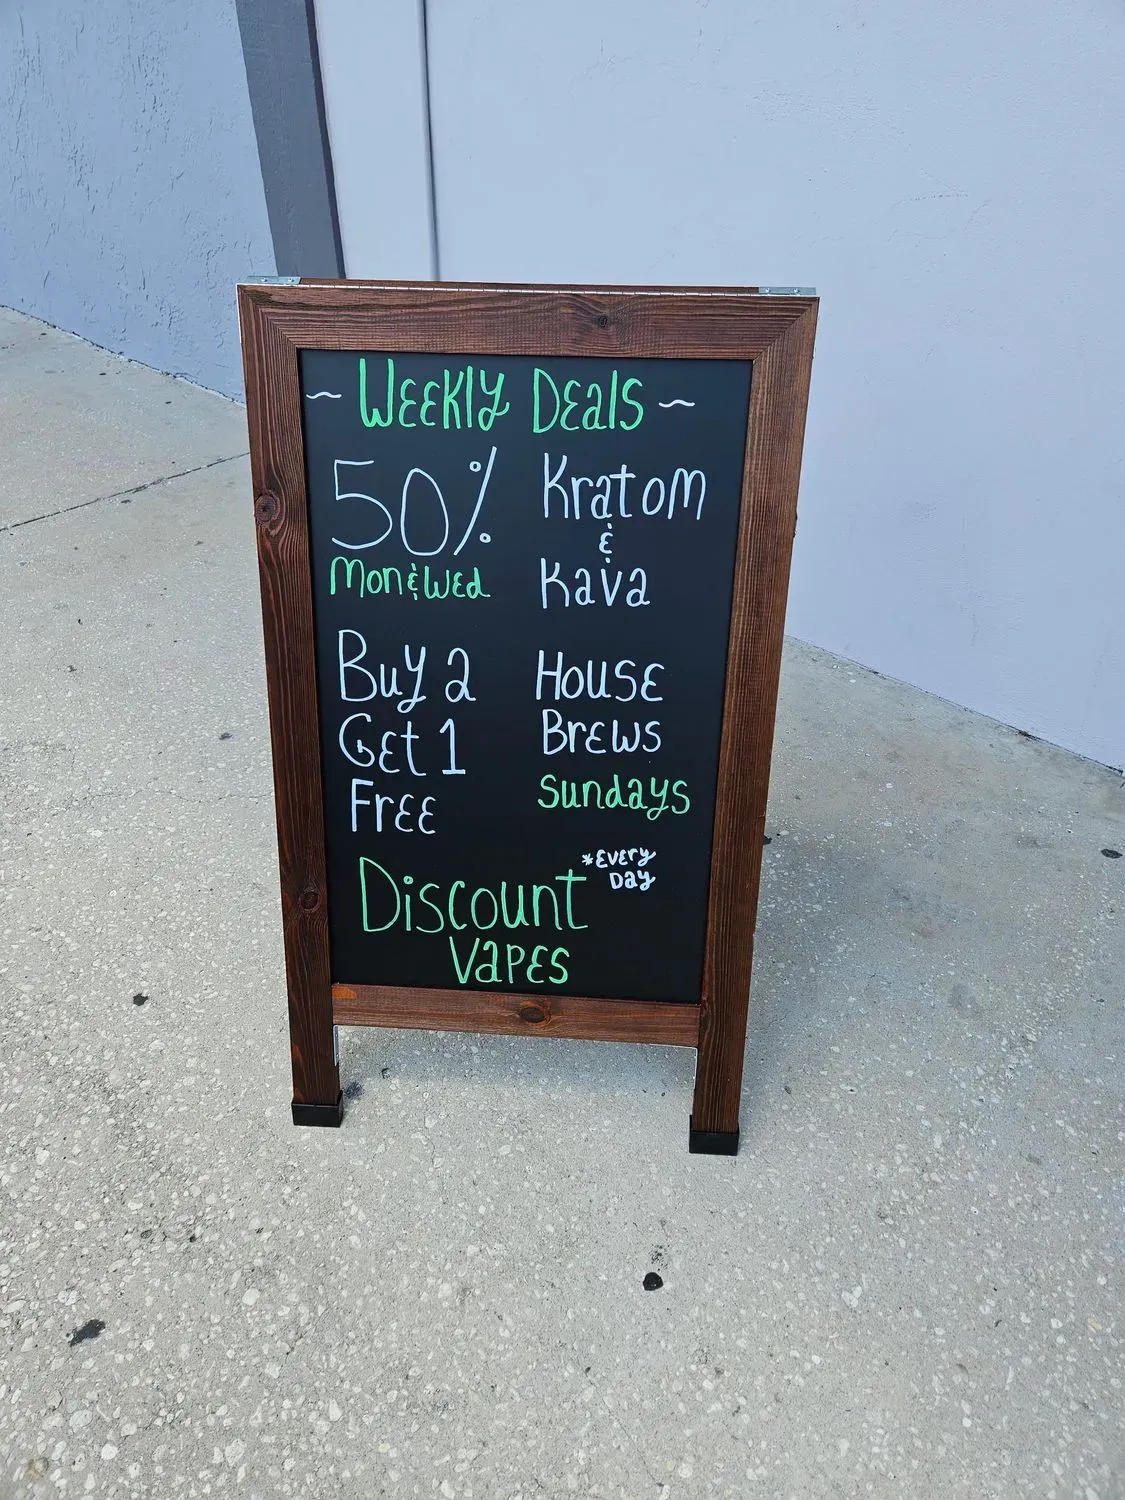 ~ Weekly Deals ~
50% Kratom
&
Mon & Wed Kava
Buy 2 House
Get 1 Brews
Free Sundays
*Every
Day
Discount
Vapes